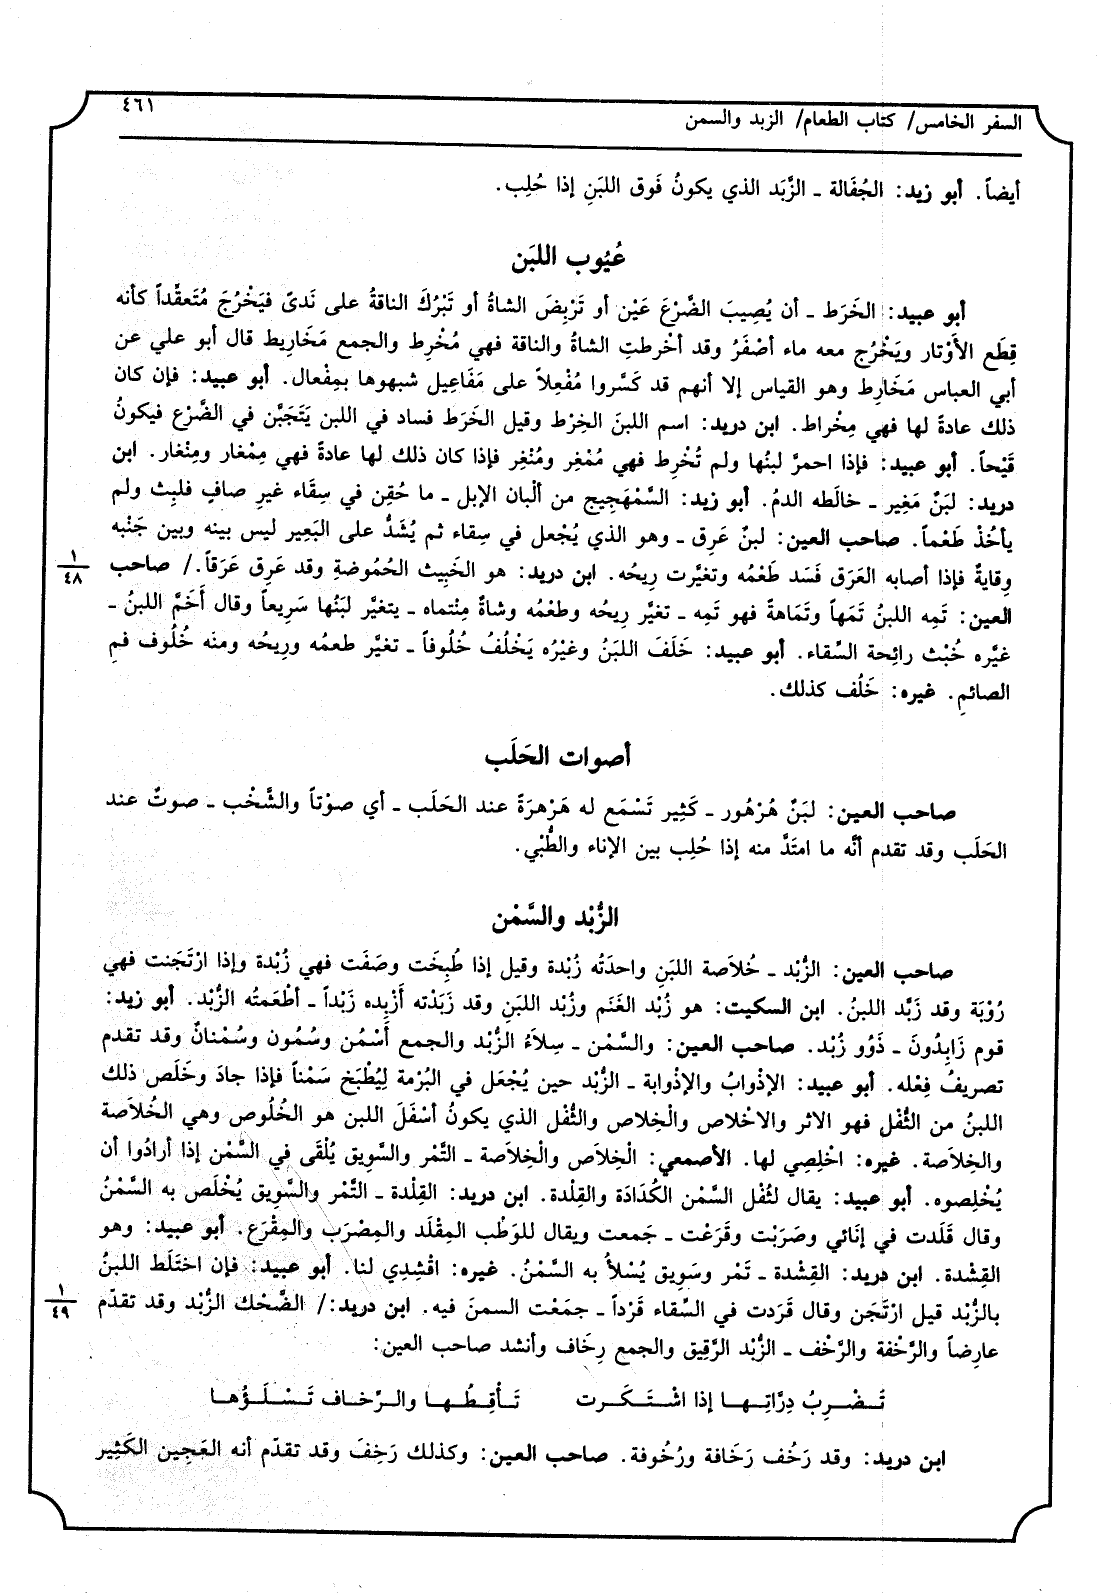 السفر الخامس/ كتاب الطعام/ الزبد والسمن
٤٦١
أيضاً. أبو زيد: الجُفَالة ـ الزَّبَد الذي يكونُ فَوق اللبَنِ إذا حُلِب.
عُيُوب اللبَن
أبو عبيد: الخَرَط ـ أن يُصِيبَ الضَّرْعَ عَيْن أو تَرْبِضَ الشاةُ أو تَبْرُكَ الناقةُ على نَدىً فيَخْرُجَ مُتَعقِّداً كأنه
قِطَع الأَوْتار ويَخْرُج معه ماء أصْفَرُ وقد أخْرطتِ الشاةُ والناقة فهي مُخْرِط والجمع مَخَارِيط قال أبو علي عن
أبي العباس مَخَارِط وهو القياس إلا أنهم قد كَسَّروا مُفْعِلاً على مَفَاعِيل شبهوها بمِفْعال. أبو عبيد: فإن كان
ذلك عادةً لها فهي مِخْراط. ابن دريد: اسم اللبنَ الخِرْط وقيل الخَرَط فساد في اللبن يَتَجَبَّن في الضَّرْع فيكونُ
قَيْحاً. أبو عبيد: فإذا احمرَّ لبنُها ولم تُخْرِط فهي مُمْغِر ومُنْغِر فإذا كان ذلك لها عادةً فهي مِمْغار ومِنْغار. ابن
دريد: لبَنٌ مَغِير ـ خالَطه الدمُ. أبو زيد: السَّمْهَجِيج من ألْبان الإبل ـ ما حُقِن في سِقَاء غيرِ صافٍ فلبِث ولم
يأخُذْ طَعْماً. صاحب العين: لبنٌ عَرِق ـ وهو الذي يُجْعل في سِقاء ثم يُشَدُّ على البَعِير ليس بينه وبين جَنْبه
وِقايةٌ فإذا أصابه العَرَق فَسَد طَعْمُه وتغيَّرت رِيحُه. ابن دريد: هو الخَبِيث الحُمُوضةِ وقد عَرِق عَرَقاً./ صاحب
١
٤٨
العين: تَمِه اللبنُ تَمَهاً وتَمَاهةً فهو تَمِه ـ تغيَّر رِيحُه وطعْمُه وشاةٌ مِتْماه ـ يتغيَّر لبَنُها سَرِيعاً وقال أَخَمَّ اللبنُ ـ
غيَّره خُبْث رائِحة السِّقاء. أبو عبيد: خَلَفَ اللبَنُ وغيْرُه يَخْلُفُ خُلُوفاً ـ تغيَّر طعمُه ورِيحُه ومنَه خُلُوف فمِ
الصائمِ. غيره: خَلُف كذلك.
أصوات الحَلَب
صاحب العين: لبَنٌ هُرْهُور ـ كَثِير تَسْمَع له هَرْهرَةً عند الحَلَب ـ أي صوْتاً والشَّخْب ـ صوتٌ عند
الحَلَب وقد تقدم أنَّه ما امتَدَّ منه إذا حُلِب بين الإناء والطُّبْي.
الزُّبْد والسَّمْن
صاحب العين: الزُّبْد ـ خُلاَصة اللبَنِ واحدَتُه زُبْدة وقيل إذا طُبِخَت وصَفَت فهي زُبْدة وإذا ارْتَجَنت فهي
رُوْبَة وقد زَبَّد اللبنُ. ابن السكيت: هو زُبْد الغَنَم وزُبْد اللبَنِ وقد زَبَدْته أَزْبِده زَبْداً ـ أطْعَمتُه الزُّبْد. أبو زيد:
قوم زَابِدُونَ ـ ذَوُو زُبْد. صاحب العين: والسَّمْن ـ سِلاَءُ الزُّبْد والجمع أَسْمُن وسُمُون وسُمْنانٌ وقد تقدم
تصريفُ فِعْله. أبو عبيد: الإذْوابُ والإذْوابة ـ الزُّبْد حين يُجْعَل في البُرْمة لِيُطْبَخ سَمْناً فإذا جادَ وخَلَص ذلك
اللبنُ من الثُّفْل فهو الاثر والاخْلاص والْخِلاص والثُّفْل الذي يكونُ أسْفَلَ اللبن هو الخُلُوص وهي الخُلاَصة
والخِلاَصة. غيره: اخْلِصِي لها. الأصمعي: الْخِلاَص والْخِلاَصة ـ التَّمْر والسَّوِيق يُلْقَى في السَّمْن إذا أرادُوا أن
يُخْلِصوه. أبو عبيد: يقال لثُفْل السَّمْن الكُدَادَة والقِلْدة. ابن دريد: القِلْدة ـ التَّمْر والسَّوِيق يُخْلَص به السَّمْنُ
وقال قَلَدت في إنَائي وصَرَبْت وقَرَعْت ـ جَمعت ويقال للوَطْب المِقْلَد والمِصْرَب والمِقْرَع. أبو عبيد: وهو
القِشْدة. ابن دريد: القِشْدة ـ تَمْر وسَوِيق يُسْلأُ به السَّمْنُ. غيره: اقْشِدِي لنا. أبو عبيد: فإن اختَلَط اللبنُ
بالزُّبْد قيل ارْتَجَن وقال قَرَدت في السِّقاء قَرْداً ـ جمَعْت السمنَ فيه. ابن دريد:/ الضَّحْك الزُّبْد وقد تقدّم
١
٤٩
عارِضاً والرَّخْفة والرَّخْف ـ الزُّبْد الرَّقِيق والجمع رِخَاف وأنشد صاحب العين:
تَـضْـرِبُ دِرَّاتِـهـا إذا اشْـتَـكَـرت تَـأْقِـطُـهـا والـرِّخاف تَـسْـلَـؤُهـا
ابن دريد: وقد رَخُف رَخَافة ورُخُوفة. صاحب العين: وكذلك رَخِفَ وقد تقدّم أنه العَجِين الكَثِير